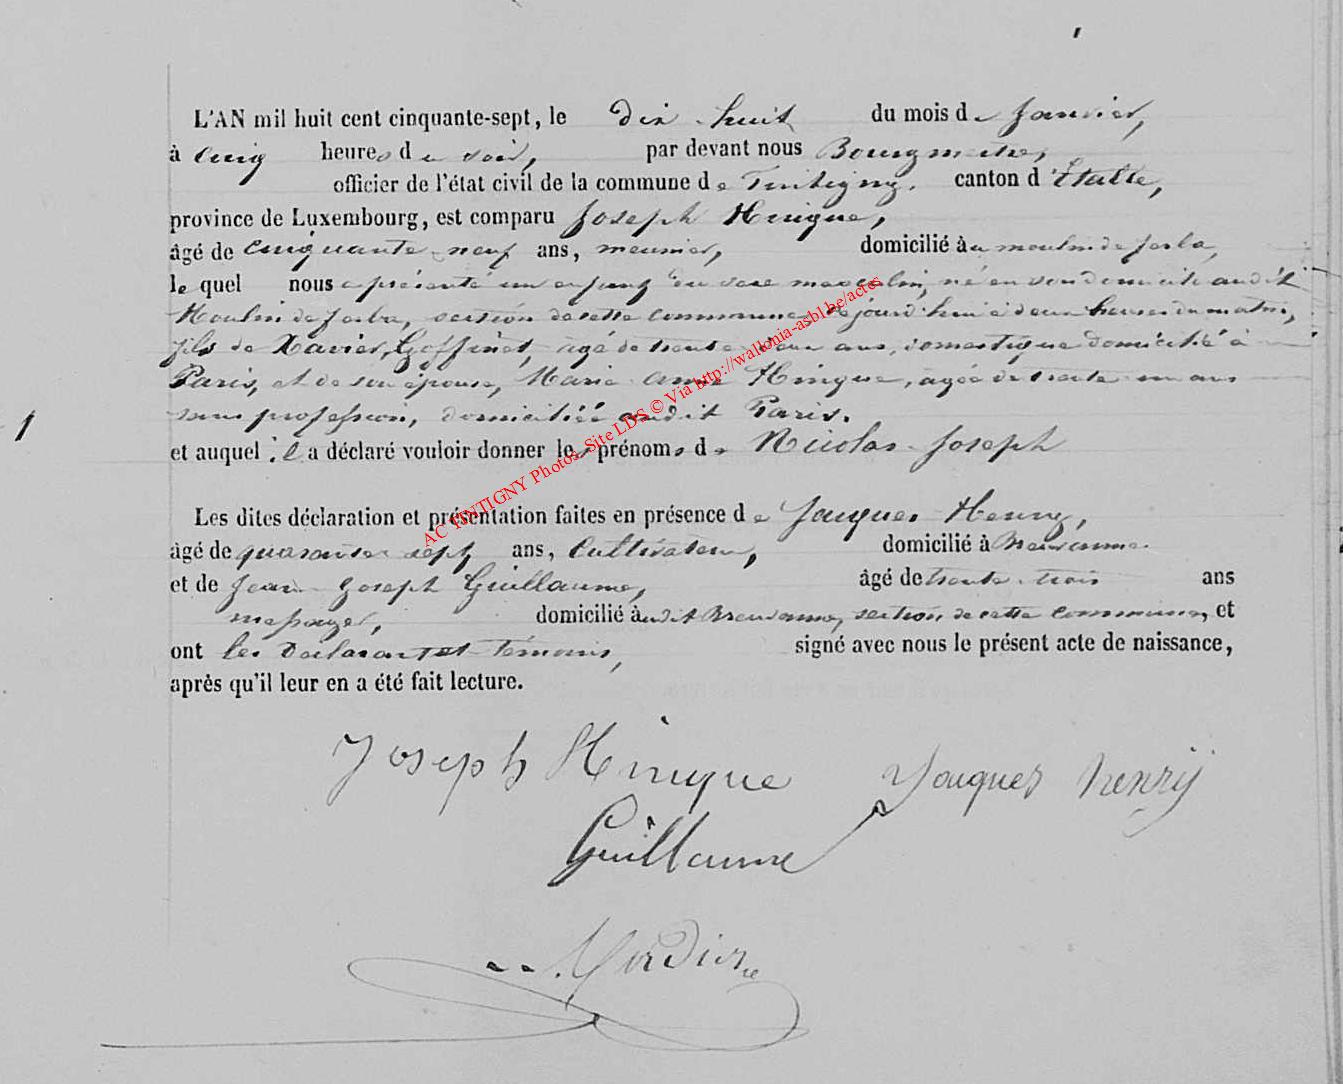 L'AN mil huit cent cinquante-sept, le dix huit du mois de Janvier,
à cinq heures du soir, par devant nous Bourgmestre,
officier de l'état civil de la commune de Tintigny, canton d'Etalle,
province de Luxembourg, est comparu Joseph Hinque,
âgé de cinquante neuf ans, meunier, domicilié au moulin de
le quel nous a présenté un enfant du sexe masculin, né en son domicile au dit
Moulin de section de cette commune, ce jourd'hui à deux heures du matin,
fils de Xavier Goffinet, âgé de trente ans, domestique domicilié à
Paris, et de son épouse, Marie Anne Hinque, agée de trente un ans
sans profession, domiciliée audit Paris.
et auquel il a déclaré vouloir donner les prénoms de Nicolas Joseph
Les dites déclaration et présentation faites en présence de Jacques Henry,
âgé de quarante sept ans, Cultivateur, domicilié à
et de Jean Joseph Guillaume, âgé de trente trois ans
messager, domicilié audit section de cette commune, et
ont les Déclarant et témoins, signé avec nous le présent acte de naissance,
après qu'il leur en a été fait lecture.
1
AC TINTIGNY Photos Site LDS © Via http://wallonia-asbl.be/actes
Joseph Hinque Jacques henrÿ
Guillaume